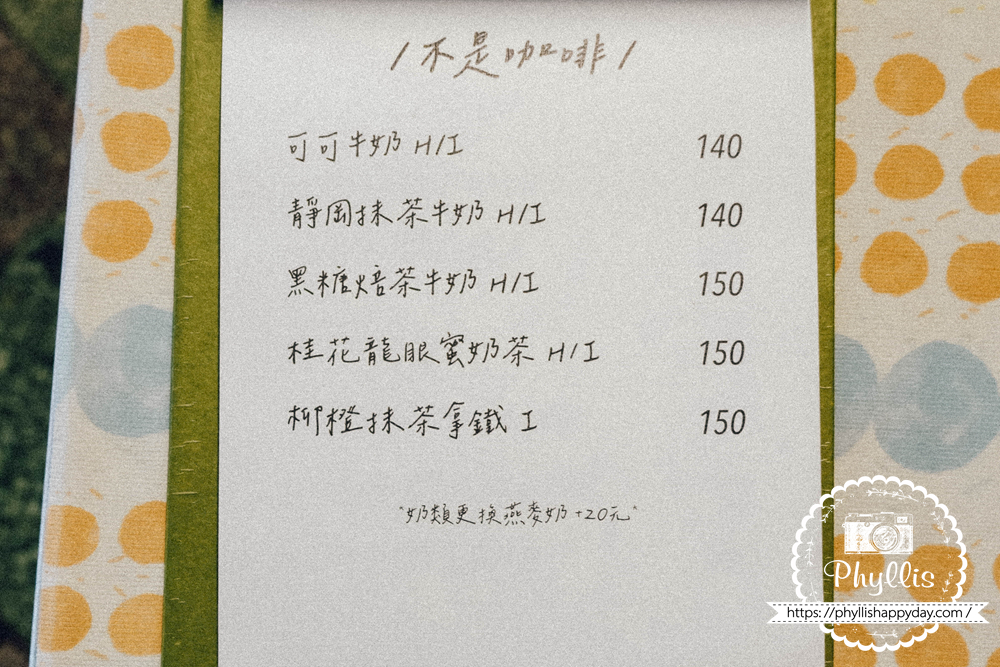 /不是咖啡/
可可牛奶 H/I 140
靜岡抹茶牛奶 H/I 140
黑糖焙茶牛奶 H/I 150
桂花龍眼蜜奶茶 H/I 150
柳橙抹茶拿鐵 I 150
"奶類更換燕麥奶+20元"
Phyllis
https://phyllishappyday.com /